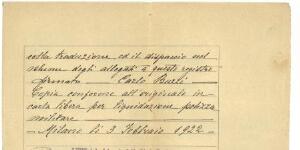 colla traduzione ed il dispaccio nel
volume degli allegati a questo registro
firmato Carlo Burli
Copia conforme all'originale in
carta libera per liquidazione polizza
militare
Milano li 3 Febbraio 1922